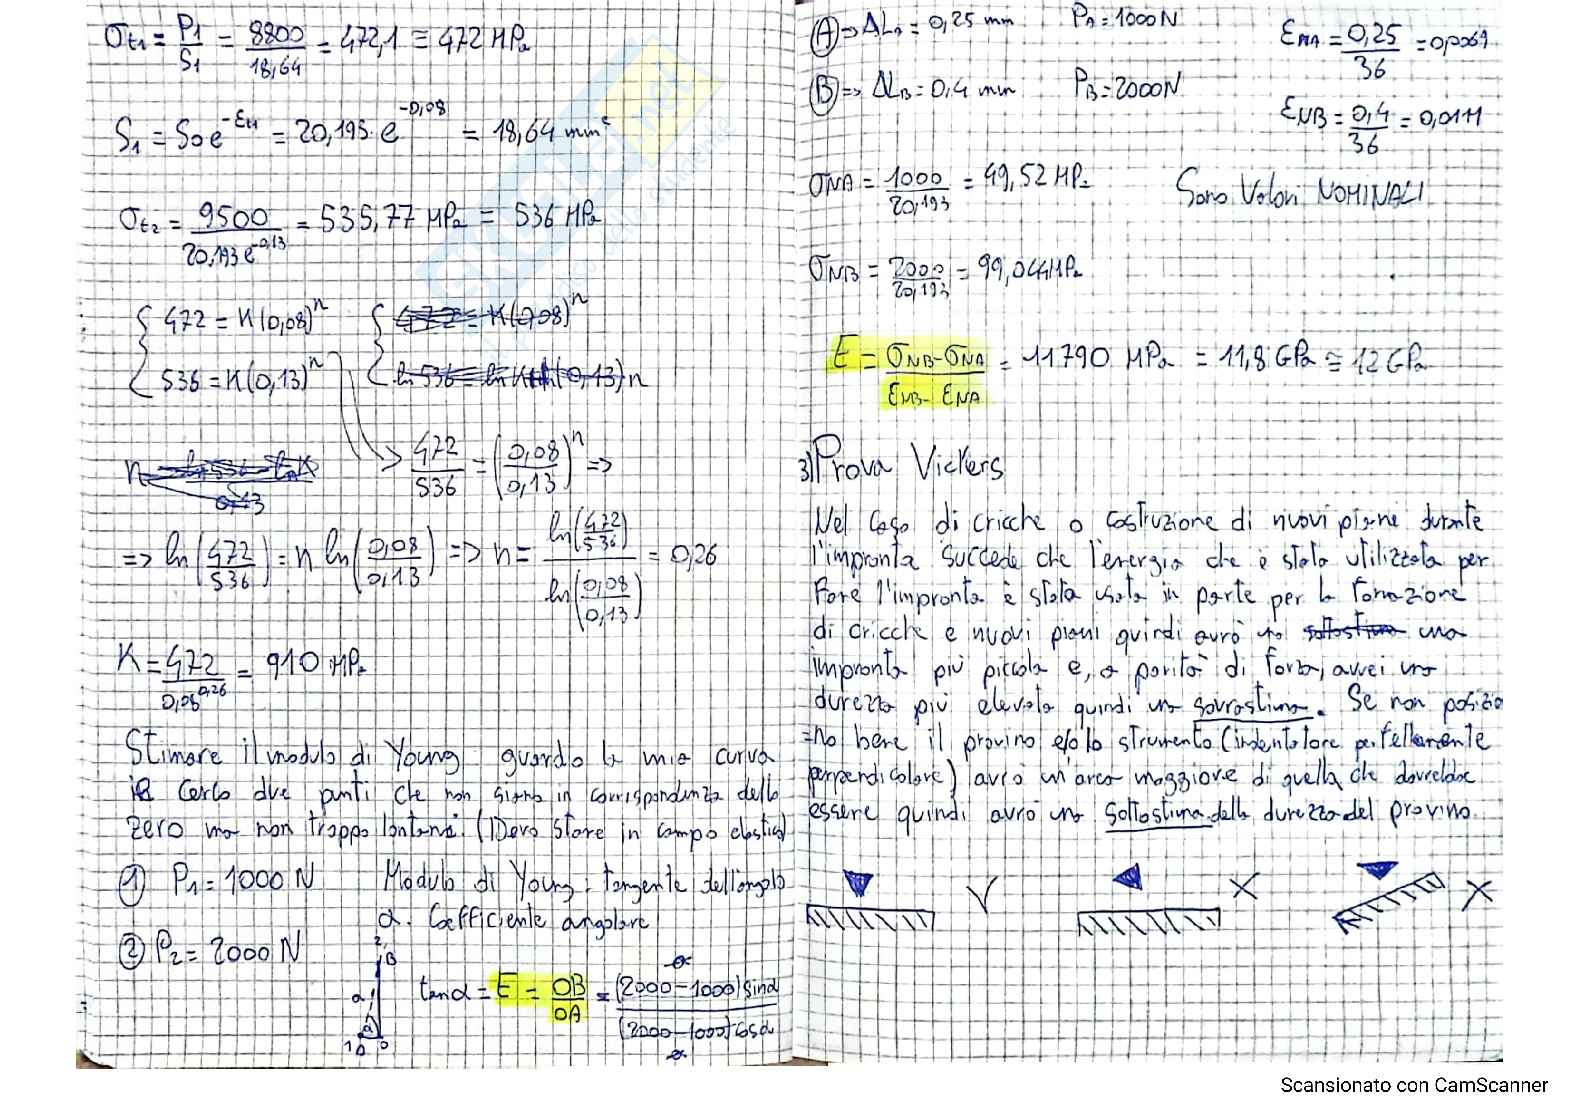 σt1 = P1/S1 = 8800/18,64 = 472,1 ≅ 472 MPa
S1 = S0 e^-εt1 = 20,193 · e^-0,08 = 18,64 mm²
σt2 = 9500/20,193 e^-0,13 = 535,77 MPa = 536 MPa
{ 472 = K(0,08)^n { 472 = K(0,08)^n
536 = K(0,13)^n ln 536 = ln K + ln(0,13) n
472/536 = (0,08/0,13)^n =>
=> ln(472/536) = n ln(0,08/0,13) => n = ln(472/536)/ln(0,08/0,13) = 0,26
K = 472/0,08^0,26 = 910 MPa
Stimare il modulo di Young guardo la mia curva
e cerco due punti che non siano in corrispondenza dello
zero ma non troppo lontano. (Devo stare in campo elastico)
① P1 = 1000 N Modulo di Young: tangente dell'angolo
α. Coefficiente angolare
② P2 = 2000 N
2 B
α
1 A 0
tanα = E = OB/OA = (2000-1000) sinα/(2000-1000) cosα
Ⓐ => ΔLA = 0,25 mm PA = 1000N εNA = 0,25/36 = 0,0069
Ⓑ => ΔLB = 0,4 mm PB = 2000N εNB = 0,4/36 = 0,0111
σNA = 1000/20,193 = 49,52 MPa Sono Valori NOMINALI
σNB = 2000/20,193 = 99,044 MPa
E = σNB-σNA/εNB-εNA = 11790 MPa = 11,8 GPa ≅ 12 GPa
3) Prova Vickers
Nel caso di cricche o costruzione di nuovi piani durante
l'impronta succede che l'energia che è stata utilizzata per
fare l'impronta è stata usata in parte per la formazione
di cricche e nuovi piani quindi avrò una sottostima una
impronta più piccola e, a parità di forza, avrei una
durezza più elevata quindi una sovrastima. Se non posizio
=no bene il provino e/o lo strumento (indentatore perfettamente
perpendicolare) avrò un'area maggiore di quella che dovrebbe
essere quindi avrò una sottostima della durezza del provino.
Scansionato con CamScanner